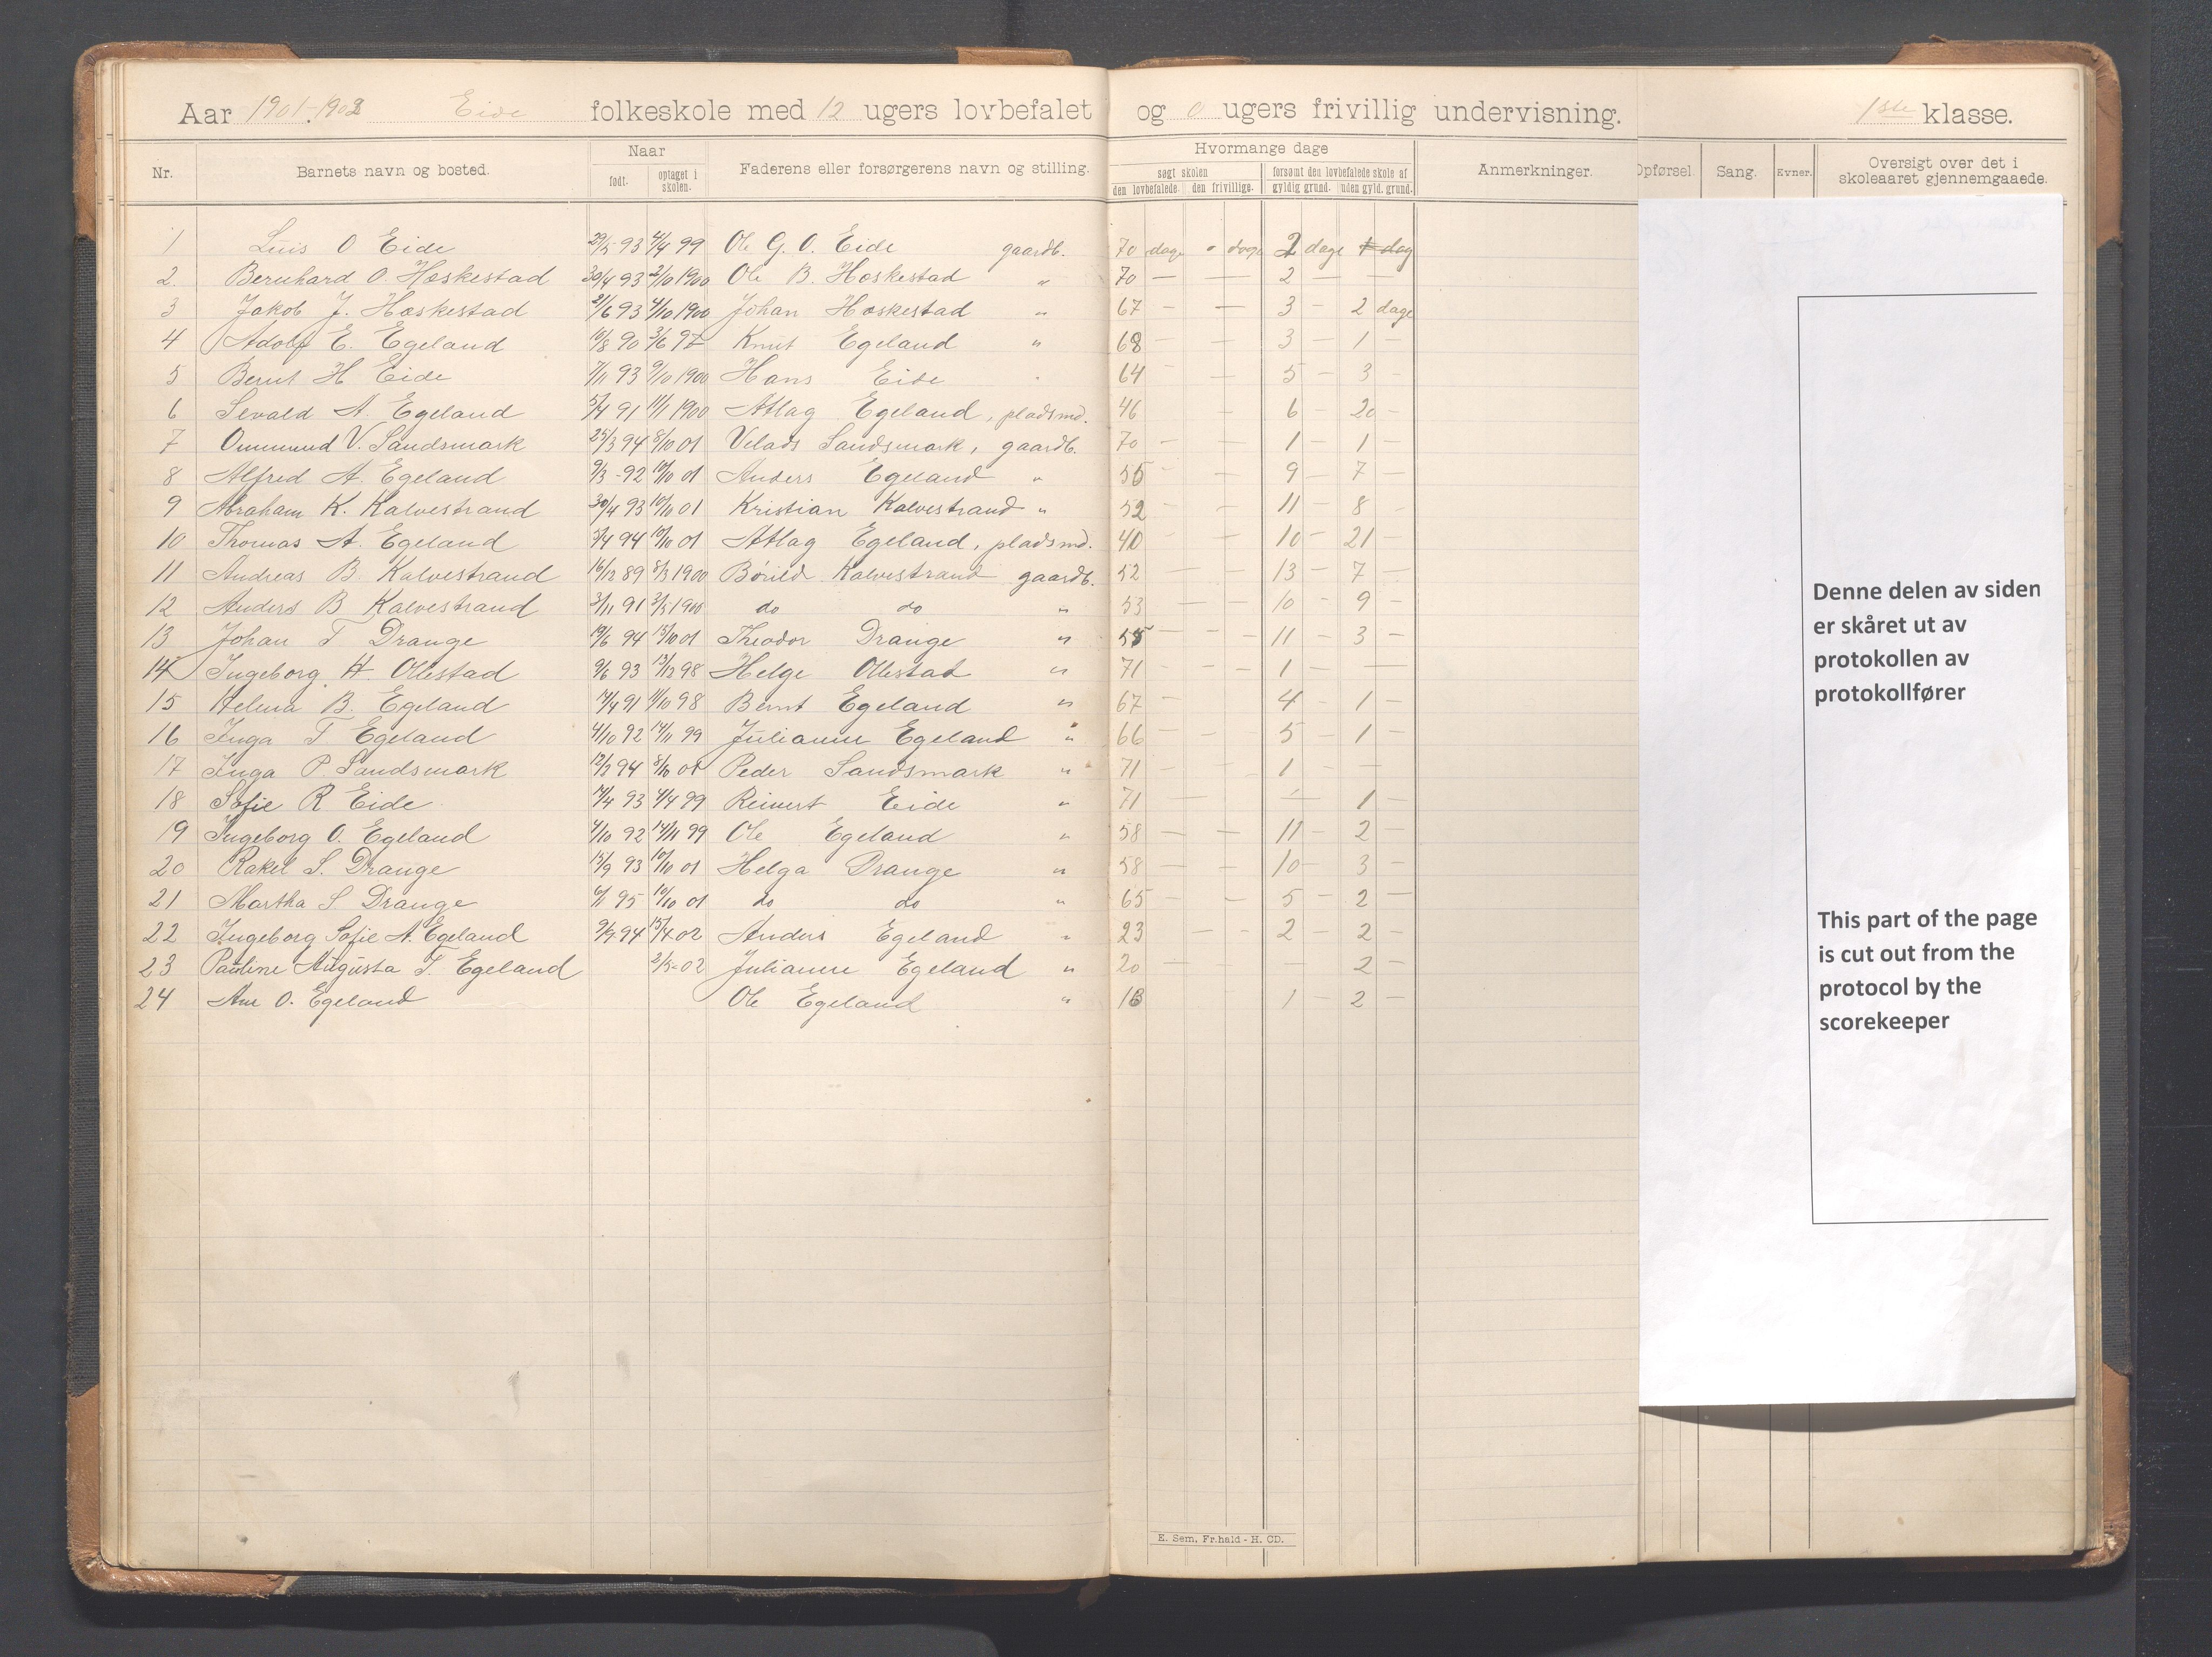 Aar 1901-1902 Eide folkeskole med 12 ugers lovbefalet og 0 ugers frivillig undervisning. 1ste klasse.
Nr. Barnets navn og bosted. Naar født. optaget i skolen. Faderens eller forsørgerens navn og stilling. Hvormange dage søgt skolen den lovbefalede. den frivillige. forsømt den lovbefalede skole af gyldig grund. uden gyld. grund. Anmerkninger. Opførsel. Sang. Evner. Oversigt over det i skoleaaret gjennemgaaede.
1 Luis O Eide 29/5 93 4/4 99 Ole G. O. Eide gaardb. 70 dage " dage 2 dage 1 dag
2. Bernhard O. Hæskestad 30/4 93 2/10 1900 Ole B. Hæskestad " 70 — — 2 — —
3 Jakob J. Hæskestad 21/6 93 4/10 1900 Johan Hæskestad " 67 — — 3 – 2 dage
4 Adolf E. Egeland 10/8 90 3/6 97 Knut Egeland " 68 — 3 – 1 –
5 Bernt H Eide 7/11 93 9/10 1900 Hans Eide " 64 – — 5 – 3 –
6 Sevald A. Egeland 5/4 91 11/1 1900 Atlag Egeland, pladsmd. 46 – 6 – 20 –
7 Ommund V. Sandsmark 25/3 94 8/10 01 Velads Sandsmark, gaardb. 70 – — 1 – 1 –
8 Alfred A. Egeland 9/3 -92 10/10 01 Anders Egeland " 55 – – 9 – 7 –
9 Abraham K. Kalvestrand 30/4 93 10/10 01 Kristian Kalvestrand " 52 – – 11 – 8 –
10 Thomas A. Egeland 5/4 94 10/10 01 Atlag Egeland, pladsmd. 40 – – 10 – 21 –
11 Andreas B. Kalvestrand 16/12 89 8/3 1900 Børild Kalvestrand gaardb. 52 — – 13 – 7 –
12 Anders B Kalvestrand 3/11 91 3/5 1900 do do " 53 — – 10 – 9 –
13 Johan T Drange 19/6 94 15/10 01 Theodor Drange " 55 – – – 11 – 3 –
14 Ingeborg H. Ollestad 9/6 93 13/12 98 Helge Ollestad " 71 – – – 1 – —
15 Helena B. Egeland 14/4 91 11/10 98 Bernt Egeland " 67 – 4 – 1 –
16 Inga T Egeland 4/10 92 14/11 99 Julianne Egeland " 66 – – – 5 – 1 –
17 Inga P. Sandsmark 12/3 94 8/10 01 Peder Sandsmark " 71 – – 1 – —
18 Sofie R Eide 14/4 93 4/4 99 Reinert Eide " 71 — – — 1 –
19 Ingeborg O. Egeland 4/10 92 14/11 99 Ole Egeland " 58 – – 11 – 2 –
20 Rakel S. Drange 15/9 93 10/10 01 Helga Drange " 58 – – 10 – 3 –
21 Martha S Drange 6/1 95 10/10 01 do do " 65 – – 5 – 2 –
22 Ingeborg Sofie A. Egeland 9/9 94 15/4 02 Anders Egeland " 23 – – 2 – 2 –
23 Pauline Augusta T. Egeland 2/5-02 Julianne Egeland " 20 – – – 2 –
24 Ane O. Egeland Ole Egeland " 1 – 2 –
E. Sem, Fr.hald - H. CD.
Denne delen av siden
er skåret ut av
protokollen av
protokollfører
This part of the page
is cut out from the
protocol by the
scorekeeper